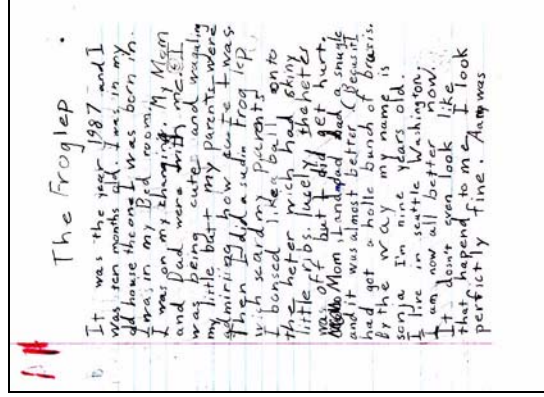 The Froglep
It was the year 1987 and I
was ten months old. I was in my
old house the one I was born in.
I was in my Bed room.
I was on my changing. My Mom
and Dad were with me. I
was being cute and wagaling
my little butt my parents were
how cute I was.
Then I did a sudin frog lep
wich scard my parents
I bonsed like a ball onto
the heter wich had skiny
little ribs. lucely the heter
was off but I did get hurt.
Mom, and dad had a snugle
and it was almost better (Becus it
had got a holle bunch of brusis.
By the way my name is
sonja I'm nine years old.
I live in seattle Washington.
I am now all better now.
It dosn't even look like
that hapend to me I look
perfictly fine.